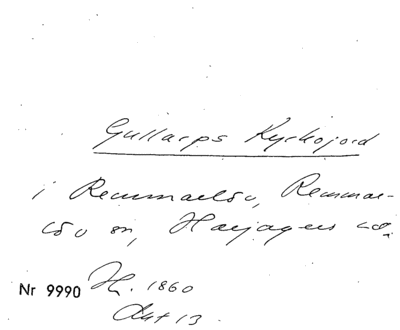 Gullarps Kyrkojord
i Remmarlöv, Remmar-
löv sn, Harjagers hd.
Nr 9990 H. 1860
Akt 13.